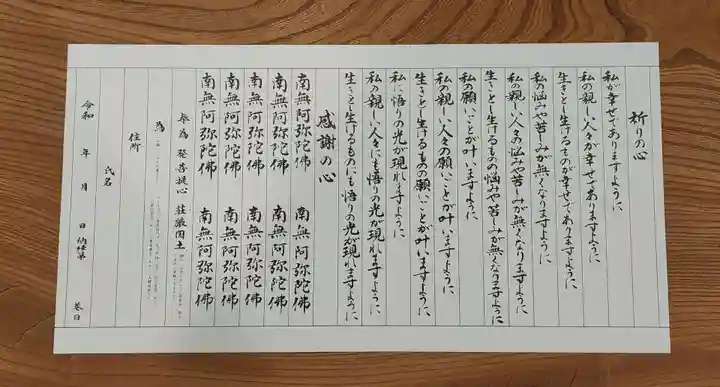 祈りの心
私が幸せでありますように
私の親しい人々が幸せでありますように
生きとし生けるものが幸せでありますように
私の悩みや苦しみが無くなりますように
私の親しい人々の悩みや苦しみが無くなりますように
生きとし生けるもの悩みや苦しみが無くなりますように
私の願いごとが叶いますように
私の親しい人々の願いごとが叶いますように
生きとし生けるもの願いごとが叶いますように
私に悟りの光が現れますように
私の親しい人々にも悟りの光が現れますように
生きとし生けるものにも悟りの光が現れますように
感謝の心
南無阿弥陀佛 南無阿弥陀佛
南無阿弥陀佛 南無阿弥陀佛
南無阿弥陀佛 南無阿弥陀佛
南無阿弥陀佛 南無阿弥陀佛
南無阿弥陀佛 南無阿弥陀佛
奉為 發菩提心 荘厳国土
為
住所
氏名
令和 年 月 日 納経第 巻目